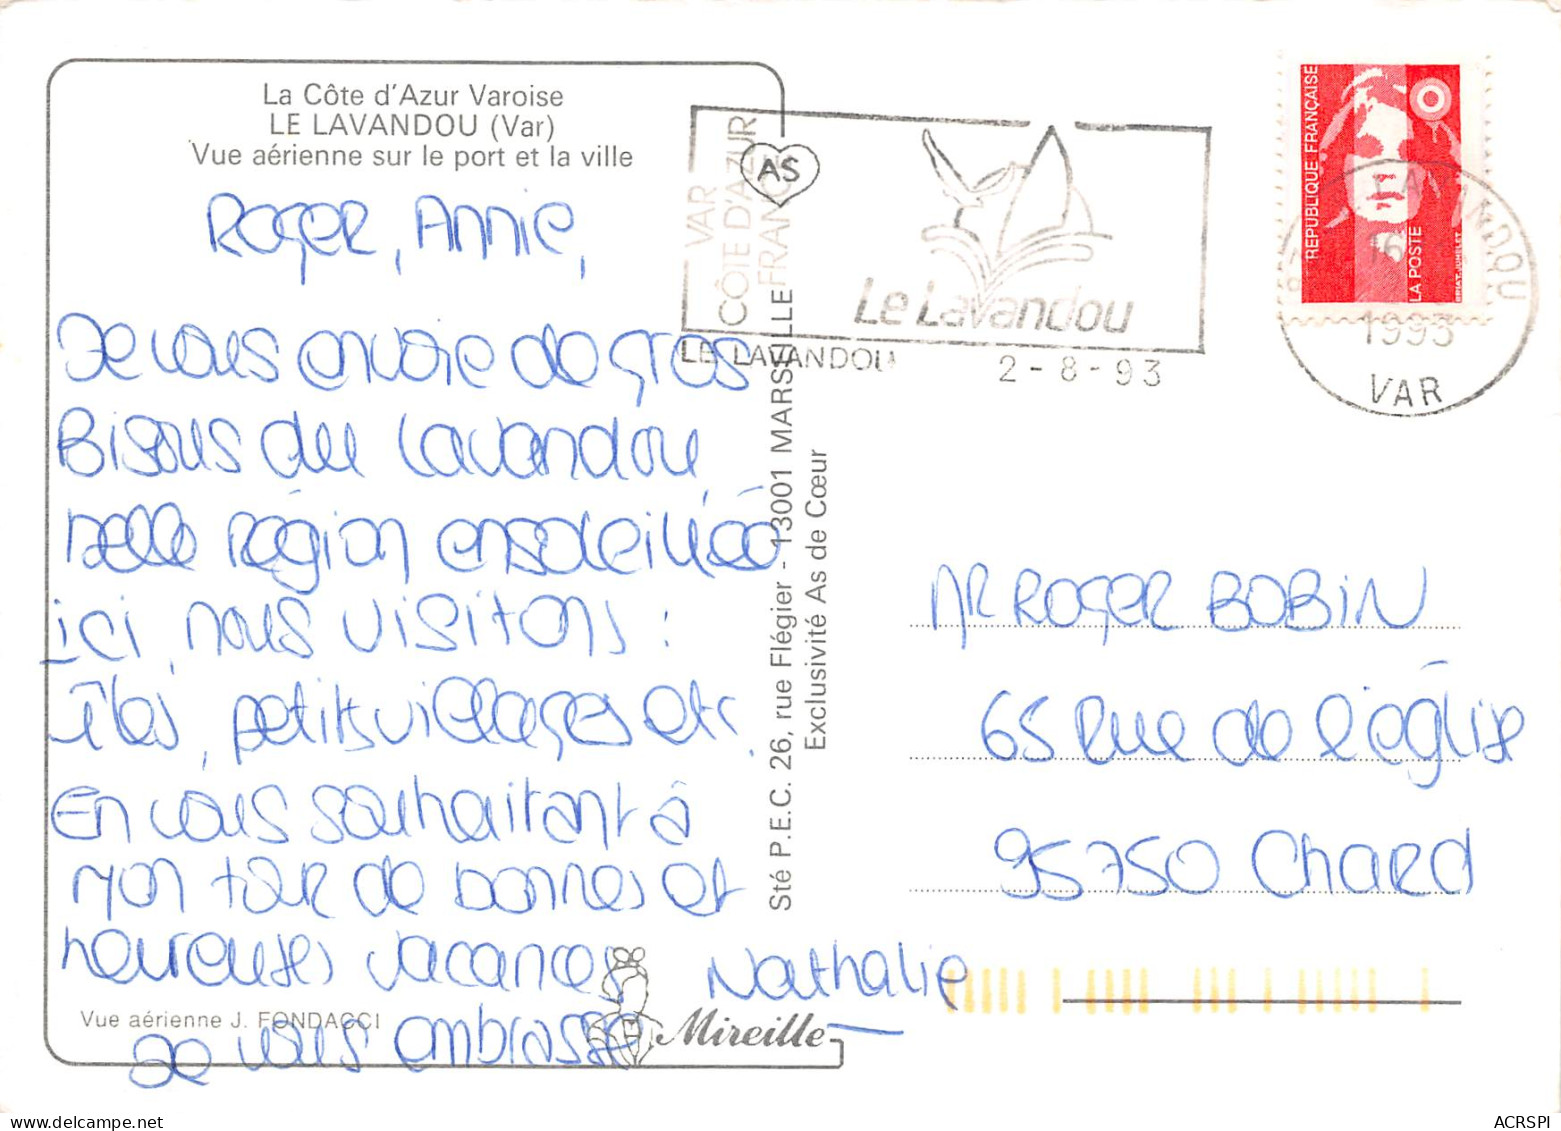 La Côte d'Azur Varoise
LE LAVANDOU (Var)
Vue aérienne sur le port et la ville
Roger, Annie,
Je vous envoie de gros
Bisous du Lavandou,
belle région ensoleillée
ici, nous visitons :
îles, petits villages etc.
En vous souhaitant à
mon tour de bonnes et
heureuses vacances
Je vous embrasse
Nathalie
Vue aérienne J. FONDACCI
Mireille
AS
VAR
CÔTE D'AZUR
FRANCE
Le Lavandou
LE LAVANDOU 2-8-93
Sté P.E.C. 26, rue Flégier - 13001 MARSEILLE
Exclusivité As de Cœur
REPUBLIQUE FRANÇAISE
LA POSTE
LAVANDOU
16
1993
VAR
Mr ROGER BOBIN
65 Rue de l'église
95750 Chard
ACRSPI